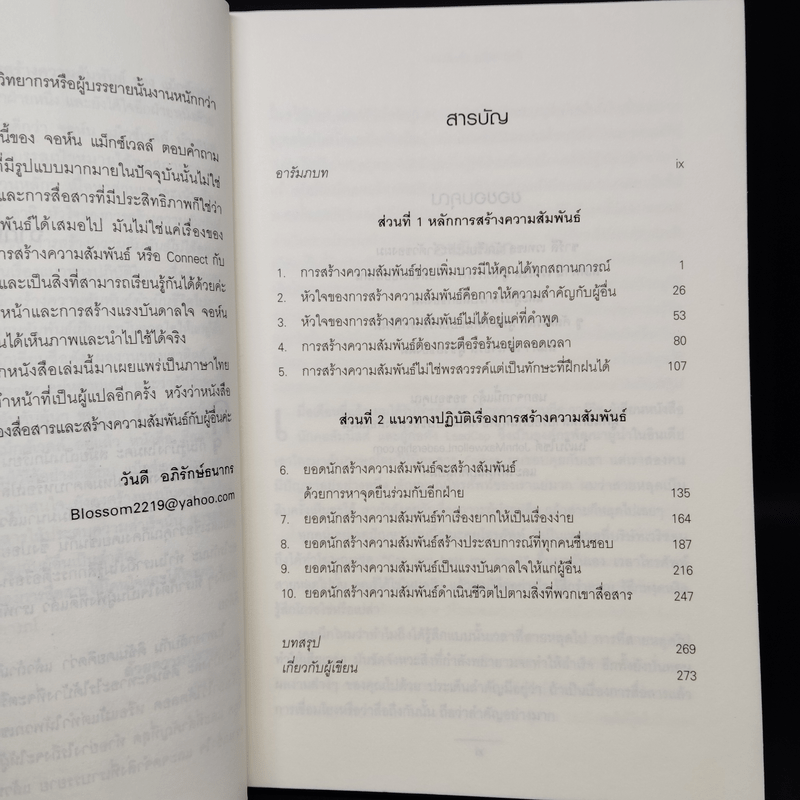 วิทยากรหรือผู้บรรยายนั้นงานหนักกว่า
นี้ของ จอห์น แม็กซ์เวลล์ ตอบคำถาม
ที่มีรูปแบบมากมายในปัจจุบันนั้นไม่ใช่
และการสื่อสารที่มีประสิทธิภาพก็ใช่ว่า
พันธ์ได้เสมอไป มันไม่ใช่แค่เรื่องของ
การสร้างความสัมพันธ์ หรือ Connect กับ
และเป็นสิ่งที่สามารถเรียนรู้กันได้ด้วยค่ะ
หน้าและการสร้างแรงบันดาลใจ จอห์น
นได้เห็นภาพและนำไปใช้ได้จริง
กหนังสือเล่มนี้มาเผยแพร่เป็นภาษาไทย
ำหน้าที่เป็นผู้แปลอีกครั้ง หวังว่าหนังสือ
องสื่อสารและสร้างความสัมพันธ์กับผู้อื่นค่ะ
วันดี อภิรักษ์ธนากร
Blossom2219@yahoo.com
สารบัญ
อารัมภบท ix
ส่วนที่ 1 หลักการสร้างความสัมพันธ์
1. การสร้างความสัมพันธ์ช่วยเพิ่มบารมีให้คุณได้ทุกสถานการณ์ 1
2. หัวใจของการสร้างความสัมพันธ์คือการให้ความสำคัญกับผู้อื่น 26
3. หัวใจของการสร้างความสัมพันธ์ไม่ได้อยู่แค่ที่คำพูด 53
4. การสร้างความสัมพันธ์ต้องกระตือรือร้นอยู่ตลอดเวลา 80
5. การสร้างความสัมพันธ์ไม่ใช่พรสวรรค์แต่เป็นทักษะที่ฝึกฝนได้ 107
ส่วนที่ 2 แนวทางปฏิบัติเรื่องการสร้างความสัมพันธ์
6. ยอดนักสร้างความสัมพันธ์จะสร้างสัมพันธ์
ด้วยการหาจุดยืนร่วมกับอีกฝ่าย 135
7. ยอดนักสร้างความสัมพันธ์ทำเรื่องยากให้เป็นเรื่องง่าย 164
8. ยอดนักสร้างความสัมพันธ์สร้างประสบการณ์ที่ทุกคนชื่นชอบ 187
9. ยอดนักสร้างความสัมพันธ์เป็นแรงบันดาลใจให้แก่ผู้อื่น 216
10. ยอดนักสร้างความสัมพันธ์ดำเนินชีวิตไปตามสิ่งที่พวกเขาสื่อสาร 247
บทสรุป 269
เกี่ยวกับผู้เขียน 273